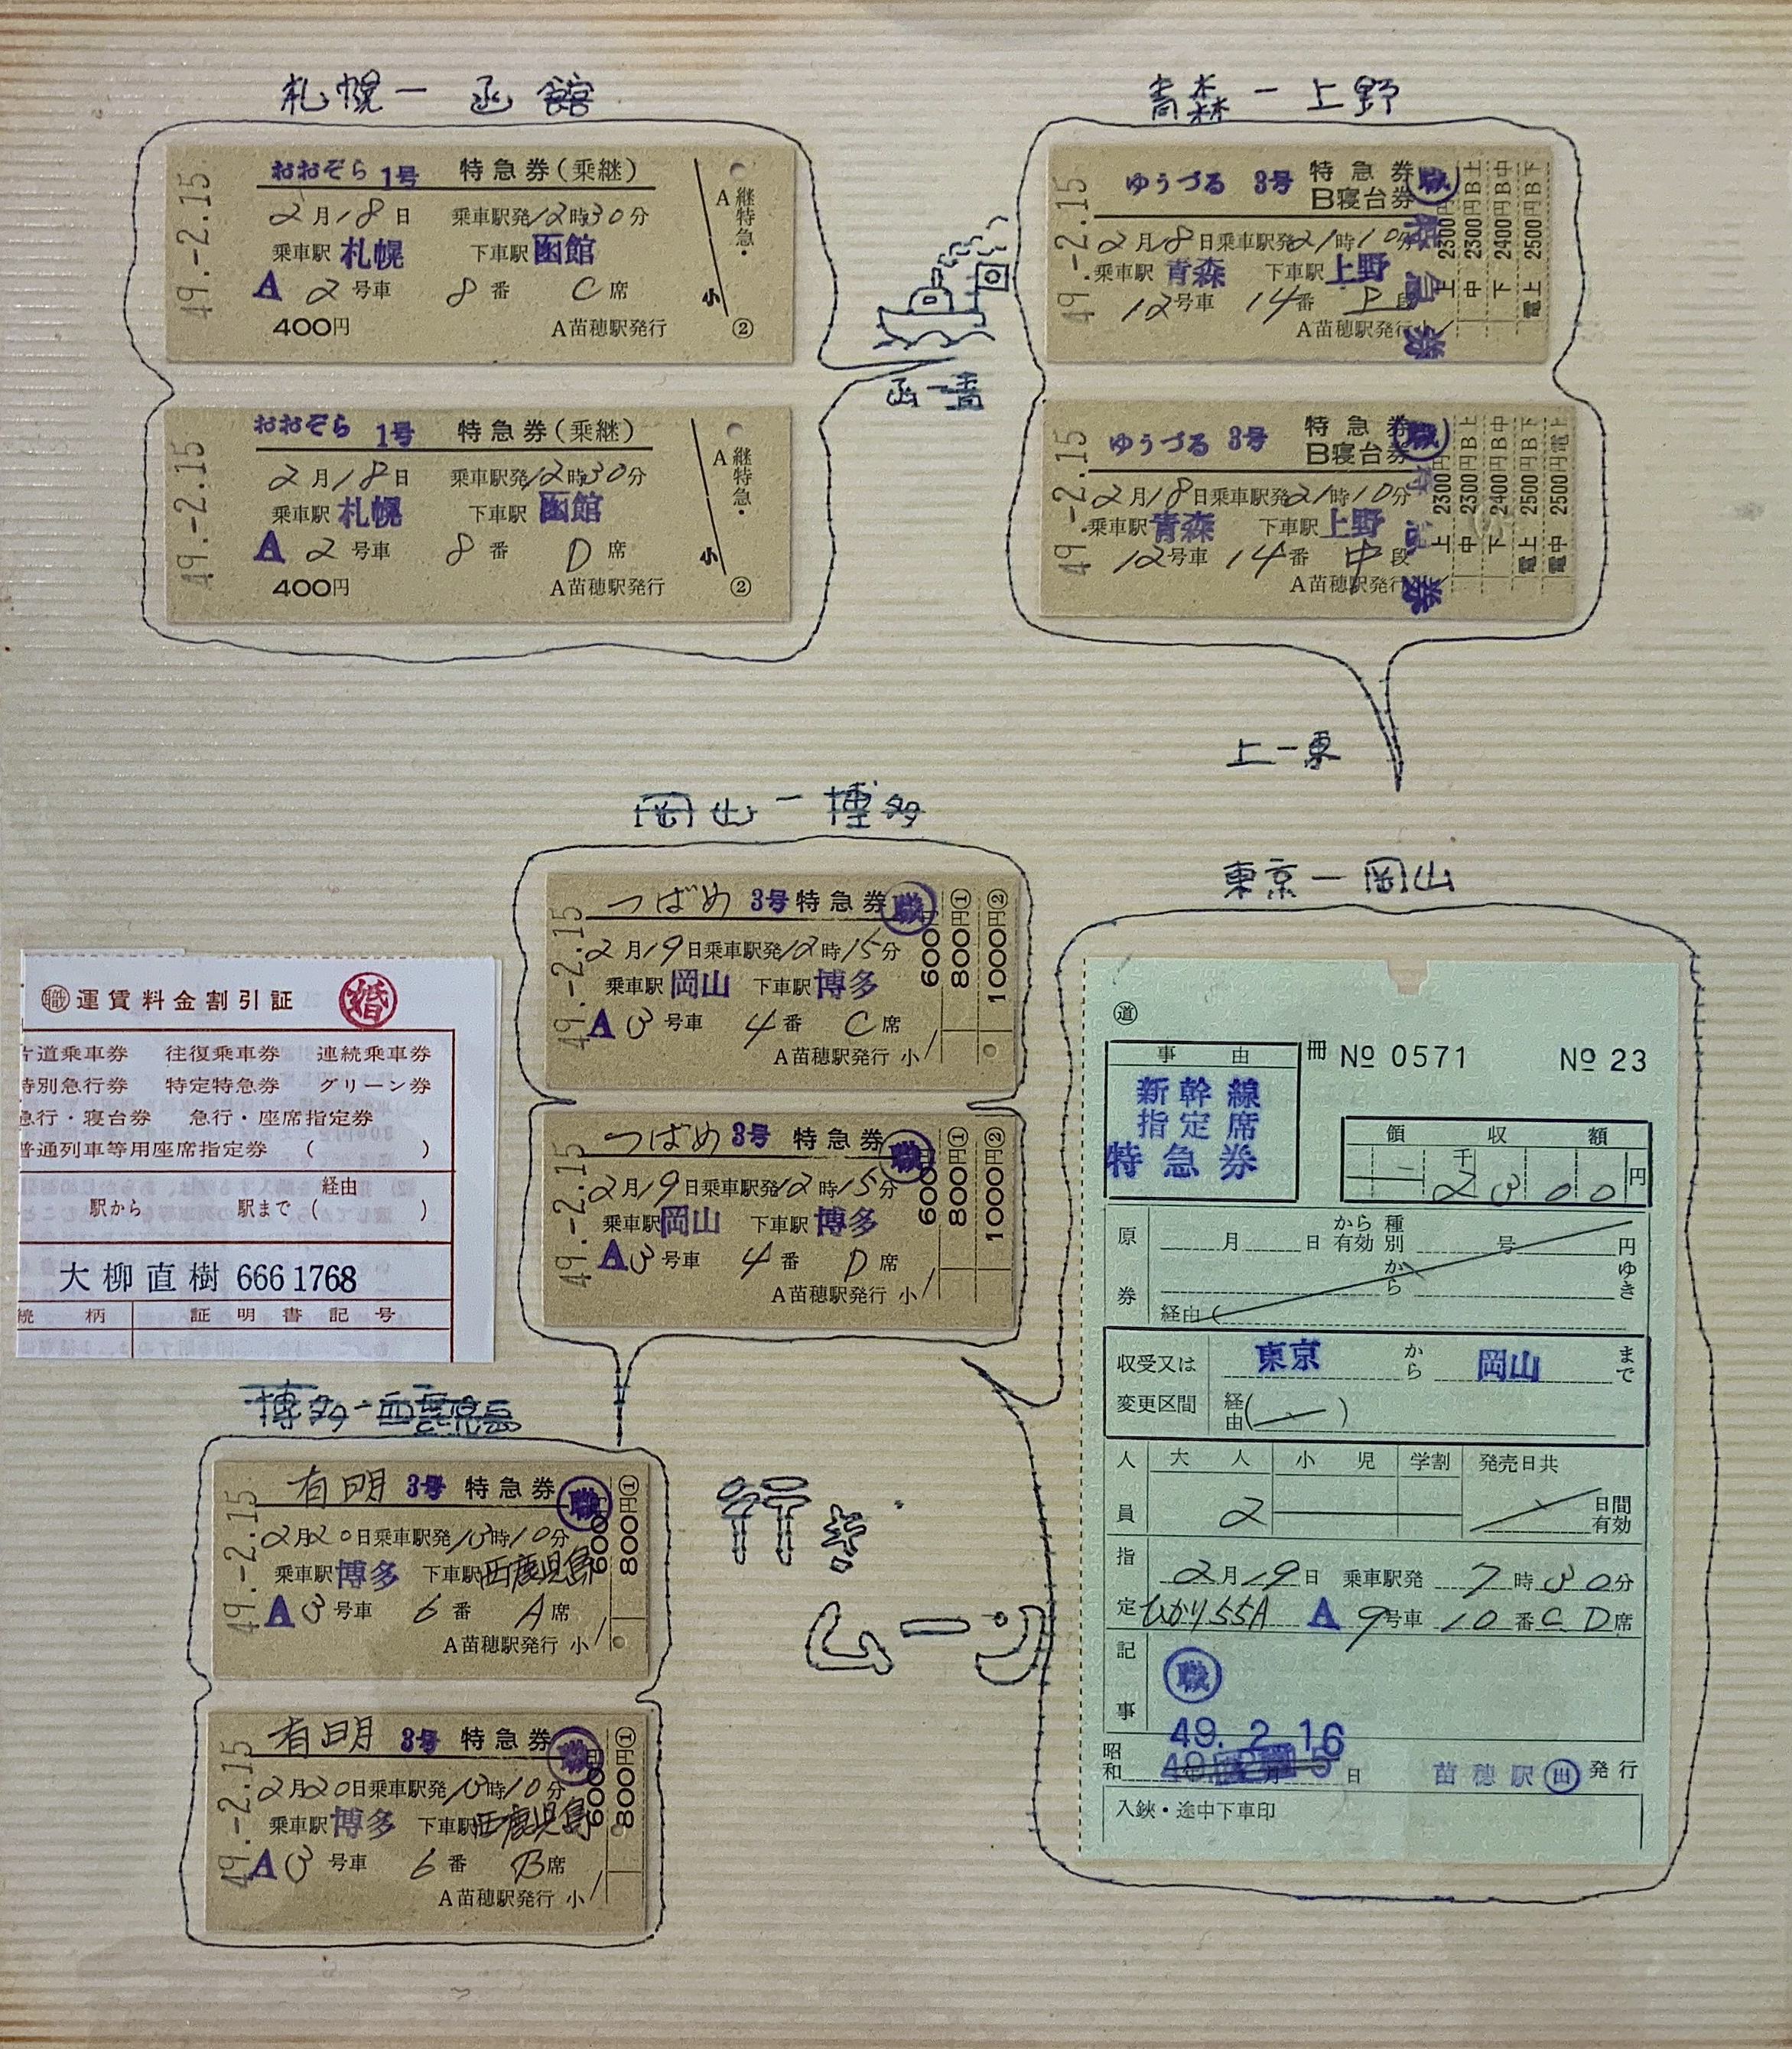 札幌ー函館
おおぞら 1号 特急券(乗継)
2月18日 乗車駅発12時30分
乗車駅 札幌 下車駅 函館
A 2号車 8番 C席
400円 A苗穂駅発行
49.-2.15
A 継特急・
小 ②
おおぞら 1号 特急券(乗継)
2月18日 乗車駅発12時30分
乗車駅 札幌 下車駅 函館
A 2号車 8番 D席
400円 A苗穂駅発行
49.-2.15
A 継特急・
小 ②
函ー青
青森ー上野
ゆうづる 3号 特急券 職
B寝台券
2月18日乗車駅発21時10分
乗車駅 青森 下車駅 上野
12号車 14番 上段
A苗穂駅発行
49.-2.15
上 2300円B上
中 2300円B中
下 2400円B下
電上 2500円
ゆうづる 3号 特急券 職
B寝台券
2月18日乗車駅発21時10分
乗車駅 青森 下車駅 上野
12号車 14番 中段
A苗穂駅発行
49.-2.15
上 2300円B上
中 2300円B中
下 2400円B下
電上 2500円電上
電中 2500円
上ー東
岡山ー博多
つばめ 3号 特急券 職
2月19日乗車駅発12時15分
乗車駅 岡山 下車駅 博多
A 3号車 4番 C席
A苗穂駅発行 小
49.-2.15
600円
800円①
1000円②
つばめ 3号 特急券 職
2月19日乗車駅発12時15分
乗車駅 岡山 下車駅 博多
A 3号車 4番 D席
A苗穂駅発行 小
49.-2.15
600円
800円①
1000円②
㊙職 運賃料金割引証 婚
片道乗車券 往復乗車券 連続乗車券
特別急行券 特定特急券 グリーン券
急行・寝台券 急行・座席指定券
普通列車等用座席指定券 ( )
駅から 駅まで (経由 )
大柳直樹 6661768
続柄 証明書記号
博多ー西鹿児島
有明 3号 特急券 職
2月20日乗車駅発13時10分
乗車駅 博多 下車駅 西鹿児島
A 3号車 6番 A席
A苗穂駅発行 小
49.-2.15
600円
800円①
有明 3号 特急券 職
2月20日乗車駅発13時10分
乗車駅 博多 下車駅 西鹿児島
A 3号車 6番 B席
A苗穂駅発行 小
49.-2.15
600円
800円①
行き
ムーン
東京ー岡山
道
事由 冊 No 0571 No 23
新幹線
指定席
特急券
領収額
千 円
2300
原券 月 日から有効 種別 号 円
から ゆき
経由(
収受又は変更区間 東京から 岡山まで
経由( )
人員 大人 小児 学割 発売日共
2 日間有効
指定 2月19日 乗車駅発 7時30分
ひかり55A A 9号車 10番 C D席
記事 職
49. 2. 16
昭和 日 苗穂駅 出 発行
入鋏・途中下車印